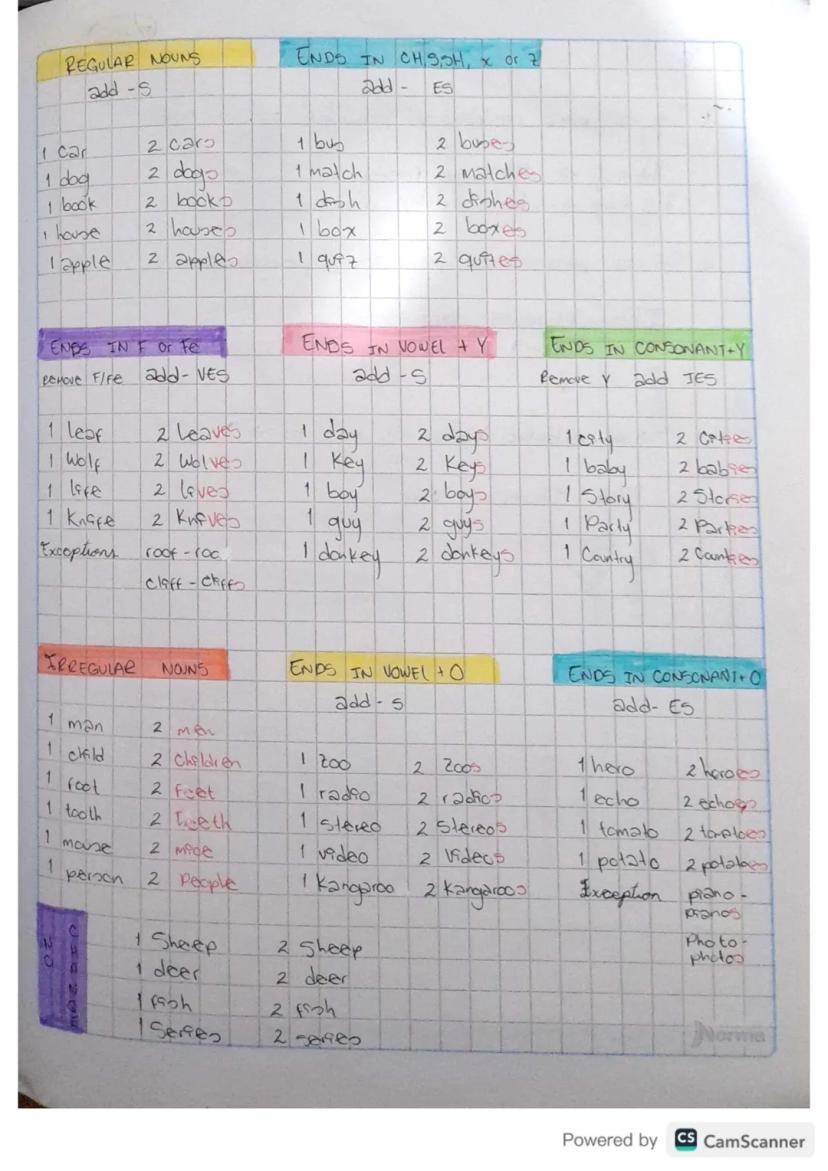 REGULAR NOUNS
add -S
1 car 2 cars
1 dog 2 dogs
1 book 2 books
1 house 2 houses
1 apple 2 apples
ENDS IN CH, SH, x or Z
add - ES
1 bus 2 buses
1 match 2 matches
1 dish 2 dishes
1 box 2 boxes
1 quiz 2 quizes
ENDS IN F or Fe
Remove F/Fe add- VES
1 leaf 2 Leaves
1 Wolf 2 Wolves
1 life 2 lives
1 Knife 2 Knives
Exceptions roof - roo
cliff - cliffs
ENDS IN VOWEL + Y
add -S
1 day 2 days
1 Key 2 Keys
1 boy 2 boys
1 guy 2 guys
1 donkey 2 donkeys
ENDS IN CONSONANT+Y
Remove Y add IES
1 city 2 Cities
1 baby 2 babies
1 Story 2 Stories
1 Party 2 Parties
1 Country 2 Countries
IRREGULAR NOUNS
1 man 2 men
1 child 2 Children
1 foot 2 feet
1 tooth 2 Teeth
1 mouse 2 mice
1 person 2 People
ENDS IN VOWEL + O
add - s
1 zoo 2 zoos
1 radio 2 radios
1 stereo 2 Stereos
1 video 2 Videos
1 Kangaroo 2 Kangaroos
ENDS IN CONSONANT+O
add- ES
1 hero 2 heroes
1 echo 2 echoes
1 tomato 2 tomatoes
1 potato 2 potatoes
Exception piano -
pianos
Photo -
photos
NO CHANGE
1 Sheep 2 Sheep
1 deer 2 deer
1 fish 2 fish
1 Series 2 series
Norma
Powered by CS CamScanner